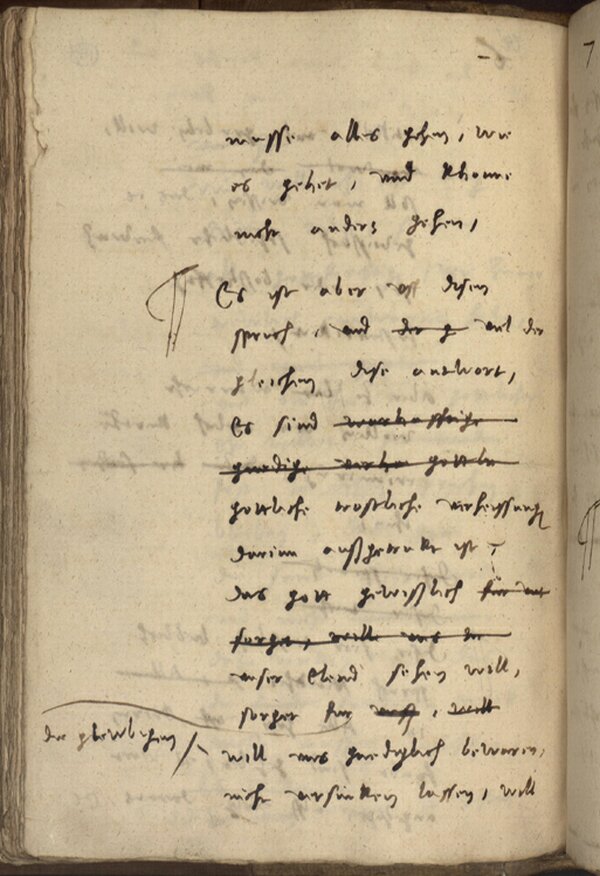 musse alles gehen, wie
es gehet, und khonne
nicht anders gehen,
Es ist aber uff disen
spruch, und der g vil der
gleichen dise antwort,
Es sind warhafftige
gnedige gottle
gottliche trostliche verheissung
darinn außgetrukt ist,
das gott gewißlich fur uns
sorget, wille uns
unser Elend sehen will,
sorget fur uns, will
die glewbigen
will uns gnediglich bewaren,
nicht versinken lassen, will